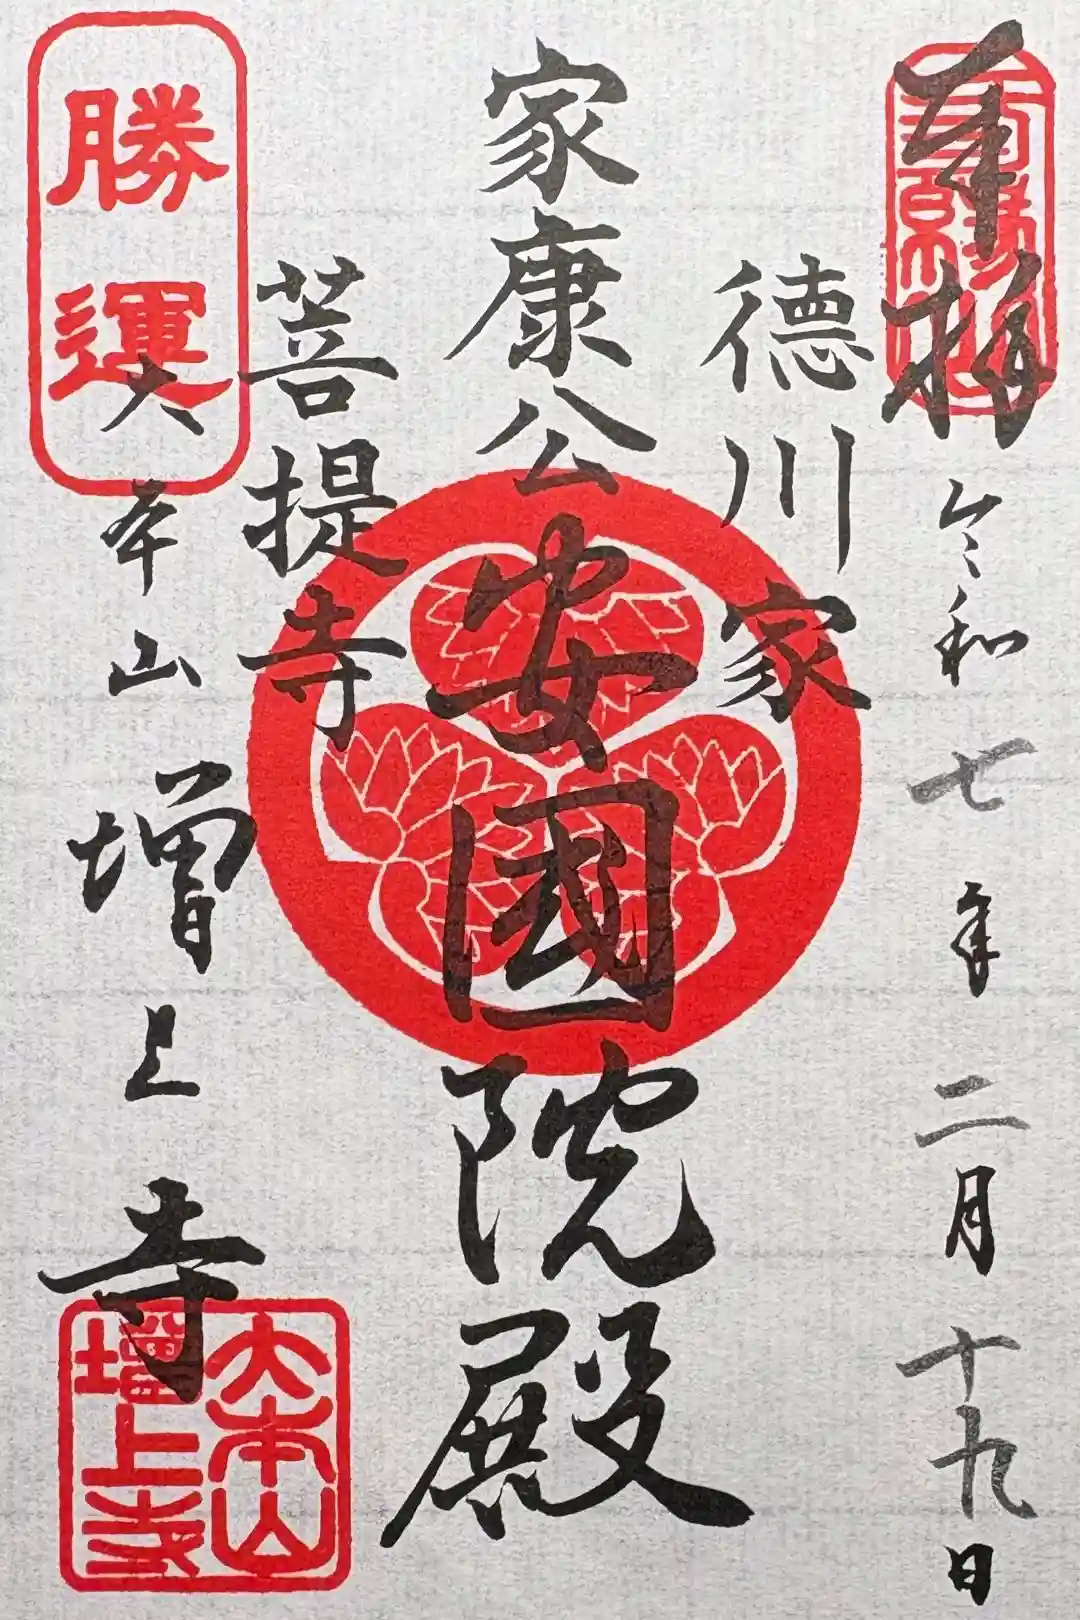 奉拝
令和七年二月十九日
徳川家
家康公
安國院殿
菩提寺
勝運
大本山増上寺
大本山
増上寺